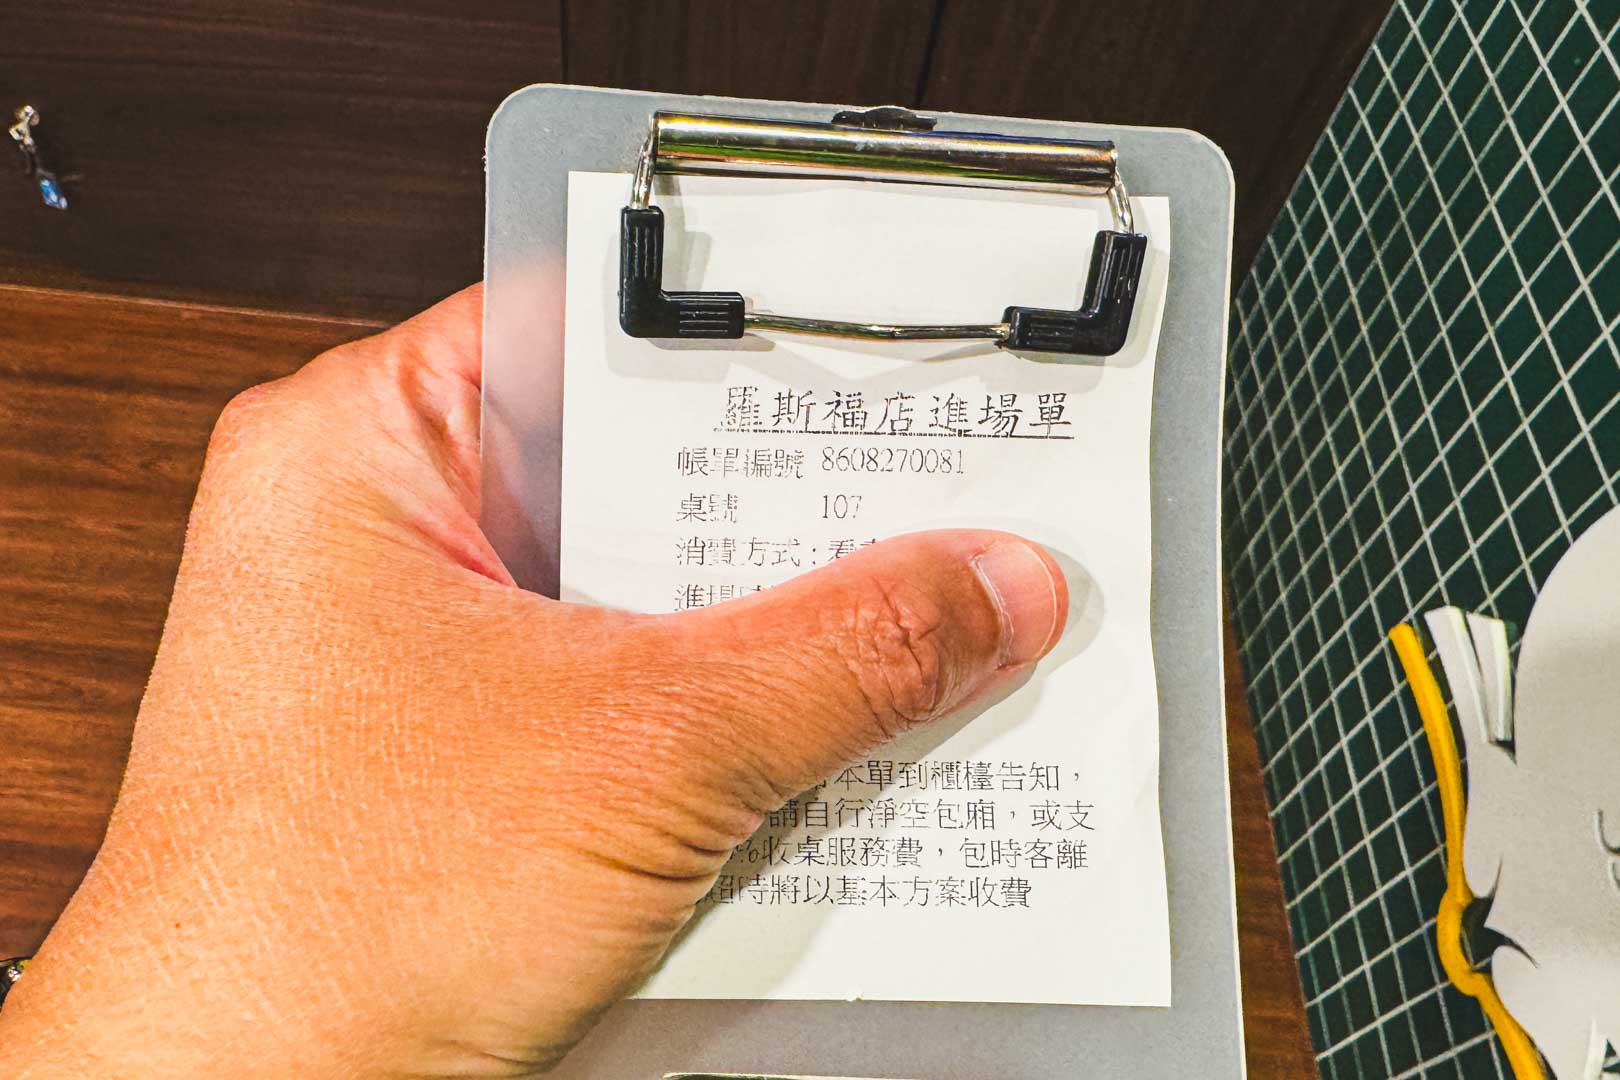 羅斯福店進場單
帳單編號 8608270081
桌號 107
消費方式：看
進場
本單到櫃檯告知，
請自行淨空包廂，或支
%收桌服務費，包時客離
超時將以基本方案收費